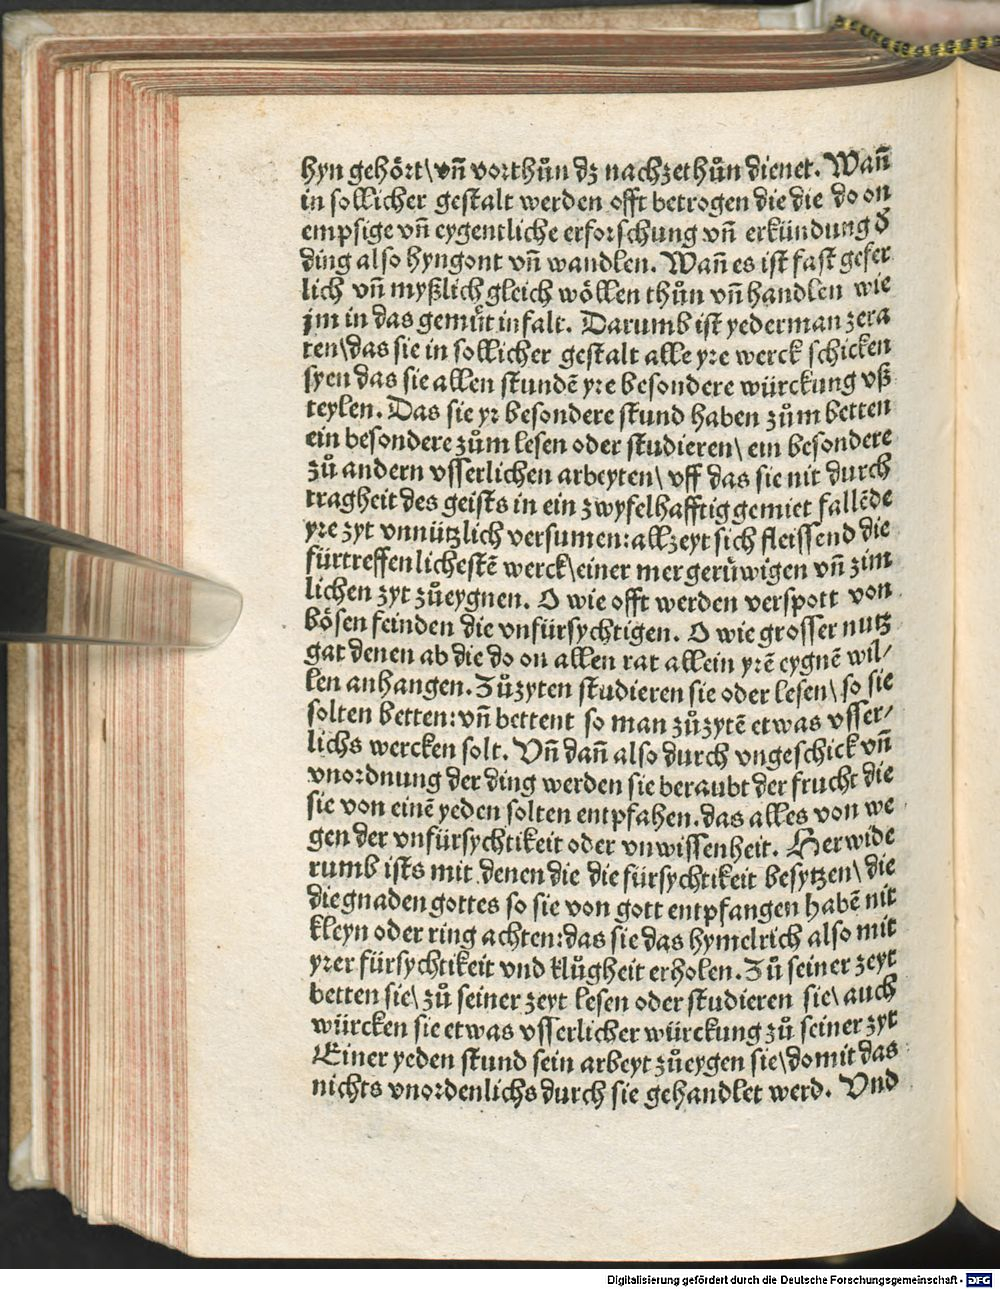 hyn gehört\ vn̄ vorthůn dz nachzethůn dienet. Wan̄
in sollicher gestalt werden offt betrogen die die do on
empsige vn̄ eygentliche erforschung vn̄ erkündung d̕
ding also hyngont vn̄ wandlen. Wan̄ es ist fast gefer
lich vn̄ myßlich gleich wöllen thůn vn̄ handlen wie
jm in das gemüt infalt. Darumb ist yederman zera
ten\ das sie in sollicher gestalt alle yre werck schicken
syen das sie allen stundē yre besondere würckung vß
teylen. Das sie yr besondere stund haben zům betten
ein besondere zům lesen oder studieren\ ein besondere
zů andern vsserlichen arbeyten\ vff das sie nit durch
tragheit des geists in ein zwyfelhafftig gemiet fallēde
yre zyt vnnützlich versumen: allzeyt sich fleissend die
fürtreffenlichestē werck\ einer mer gerüwigen vn̄ zim
lichen zyt zůeygnen. O wie offt werden verspott von
bösen feinden die vnfürsychtigen. O wie grosser nutz
gat denen ab die do on allen rat allein yrē eygnē wil/
len anhangen. Zůzyten studieren sie oder lesen\ so sie
solten betten: vn̄ bettent so man zůzytē etwas vsser/
lichs wercken solt. Vn̄ dan̄ also durch vngeschick vn̄
vnordnung der ding werden sie beraubt der frucht die
sie von einē yeden solten entpfahen. das alles von we
gen der vnfürsychtikeit oder vnwissenheit. Herwide
rumb ists mit denen die die fürsychtikeit besytzen\ die
die gnaden gottes so sie von gott entpfangen habē nit
kleyn oder ring achten: das sie das hymelrich also mit
yrer fürsychtikeit vnd klůgheit erholen. Zů seiner zeyt
betten sie\ zů seiner zeyt lesen oder studieren sie\ auch
würcken sie etwas vsserlicher würckung zů seiner zyt
Einer yeden stund sein arbeyt zůeygen sie\ domit das
nichts vnordenlichs durch sie gehandlet werd. Vnd
Digitalisierung gefördert durch die Deutsche Forschungsgemeinschaft - DFG